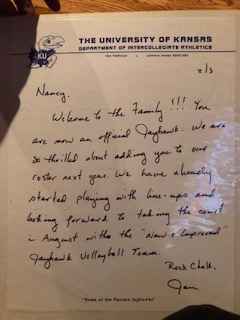 KU
THE UNIVERSITY OF KANSAS
DEPARTMENT OF INTERCOLLEGIATE ATHLETICS
Allen Fieldhouse Lawrence, Kansas
2/3
Nancy,
Welcome to the Family!!! You
are now an official Jayhawk. We are
so thrilled about adding you to our
roster next year. We have already
started playing with line-ups and
looking forward to taking the court
in August with the "New & Improved"
Jayhawk Volleyball Team.
Rock Chalk,
Jan
"Home of the Kansas Jayhawks"